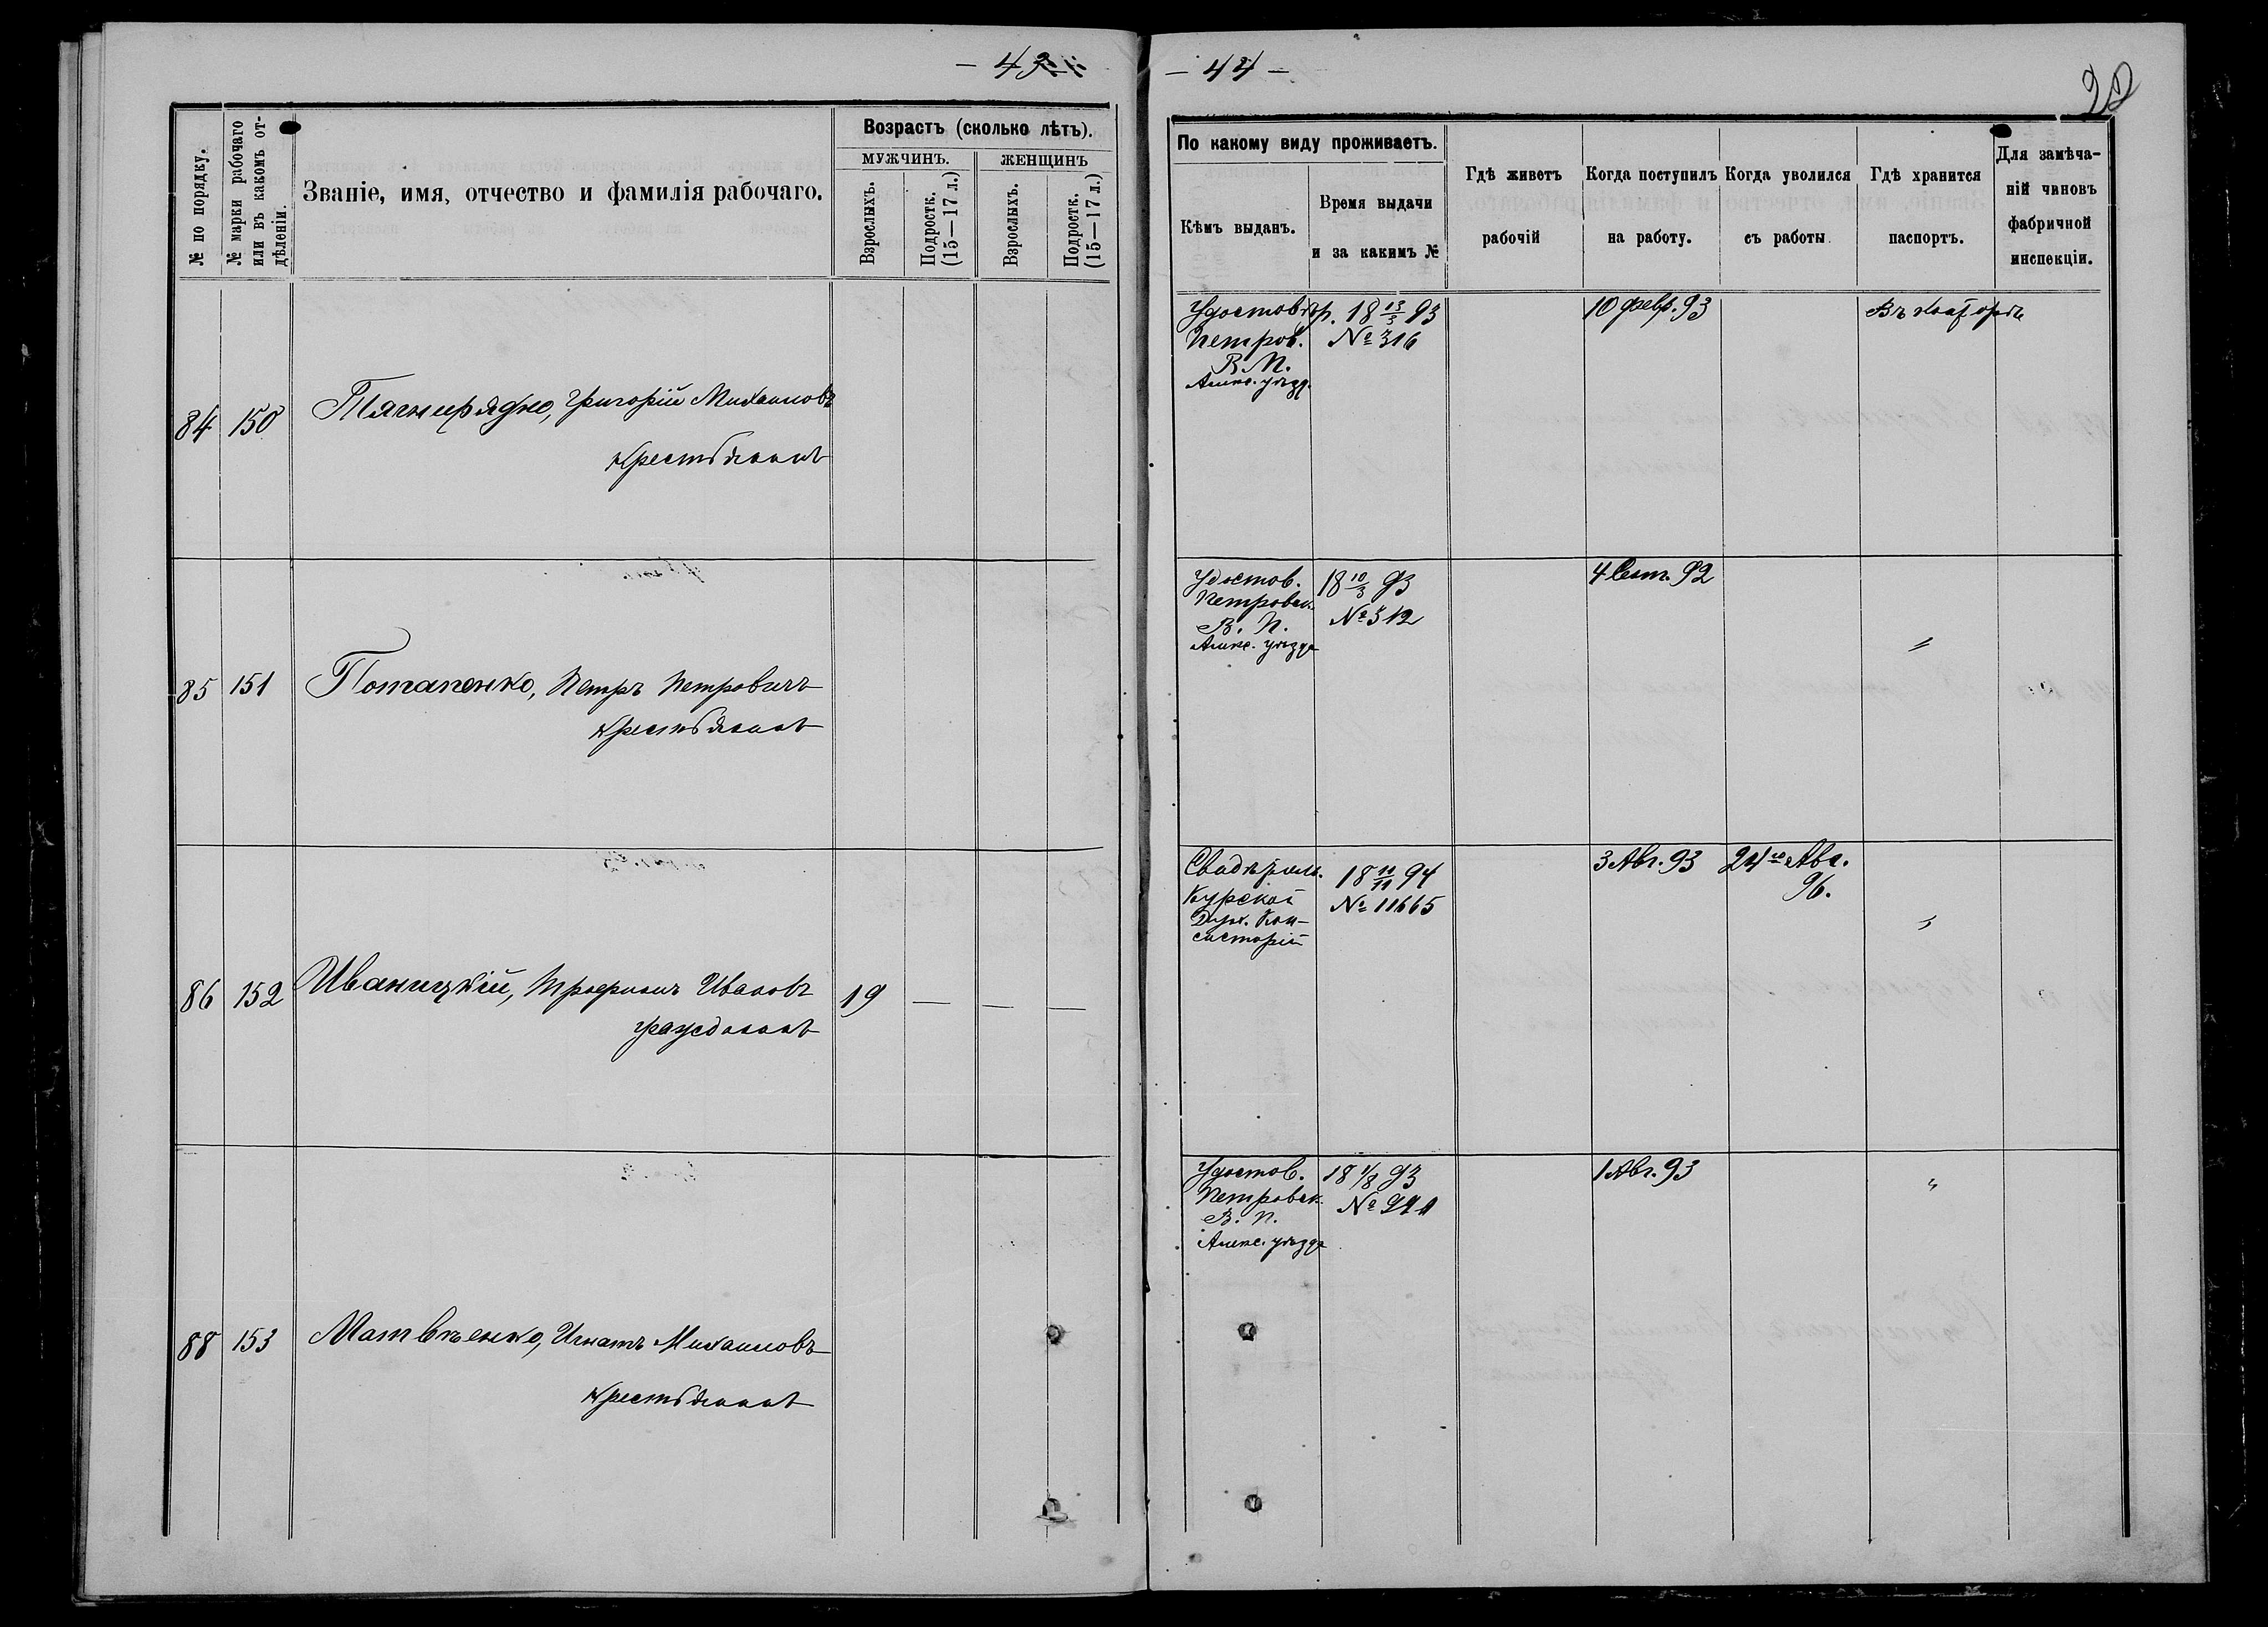 — 43 —
№ по порядку.
№ марки рабочаго
или въ какомъ от-
дѣленіи.
Званіе, имя, отчество и фамилія рабочаго.
Возрастъ (сколько лѣтъ).
МУЖЧИНЪ.
ЖЕНЩИНЪ
Взрослыхъ.
Подростк.
(15—17 л.)
Взрослыхъ.
Подростк.
(15—17 л.)
84 150 Тягнирядно, Григорій Михаиловъ
крестьянинъ
85 151 Потапенко, Петръ Петровичъ
крестьянинъ
86 152 Иваницкій, Трофимъ Ивановъ 19 — — —
гражданинъ
88 153 Матвѣенко, Игнатъ Михаиловъ
крестьянинъ
— 44 —
По какому виду проживаетъ.
Кѣмъ выданъ.
Время выдачи
и за какимъ №
Гдѣ живетъ
рабочій
Когда поступилъ
на работу.
Когда уволился
съ работы
Гдѣ хранится
паспортъ.
Для замѣча-
ній чиновъ
фабричной
инспекціи.
Удостов. 18 13/3 93 10 февр. 93 Въ конторѣ
Петров. № 316
В. П.
Алекс. уѣзд.
Удостов. 18 10/3 93 4 Сент. 92
Петровск. № 312 "
В. П.
Алекс. уѣзда
Свидѣтел. 18 11/11 94 3 Авг. 93 24го Авг.
Курской № 11665 96. "
Духов. Кон-
систоріи
Удостов. 18 1/8 93 1 Авг. 93 "
Петровск. № 991
В. П.
Алекс. уѣзда